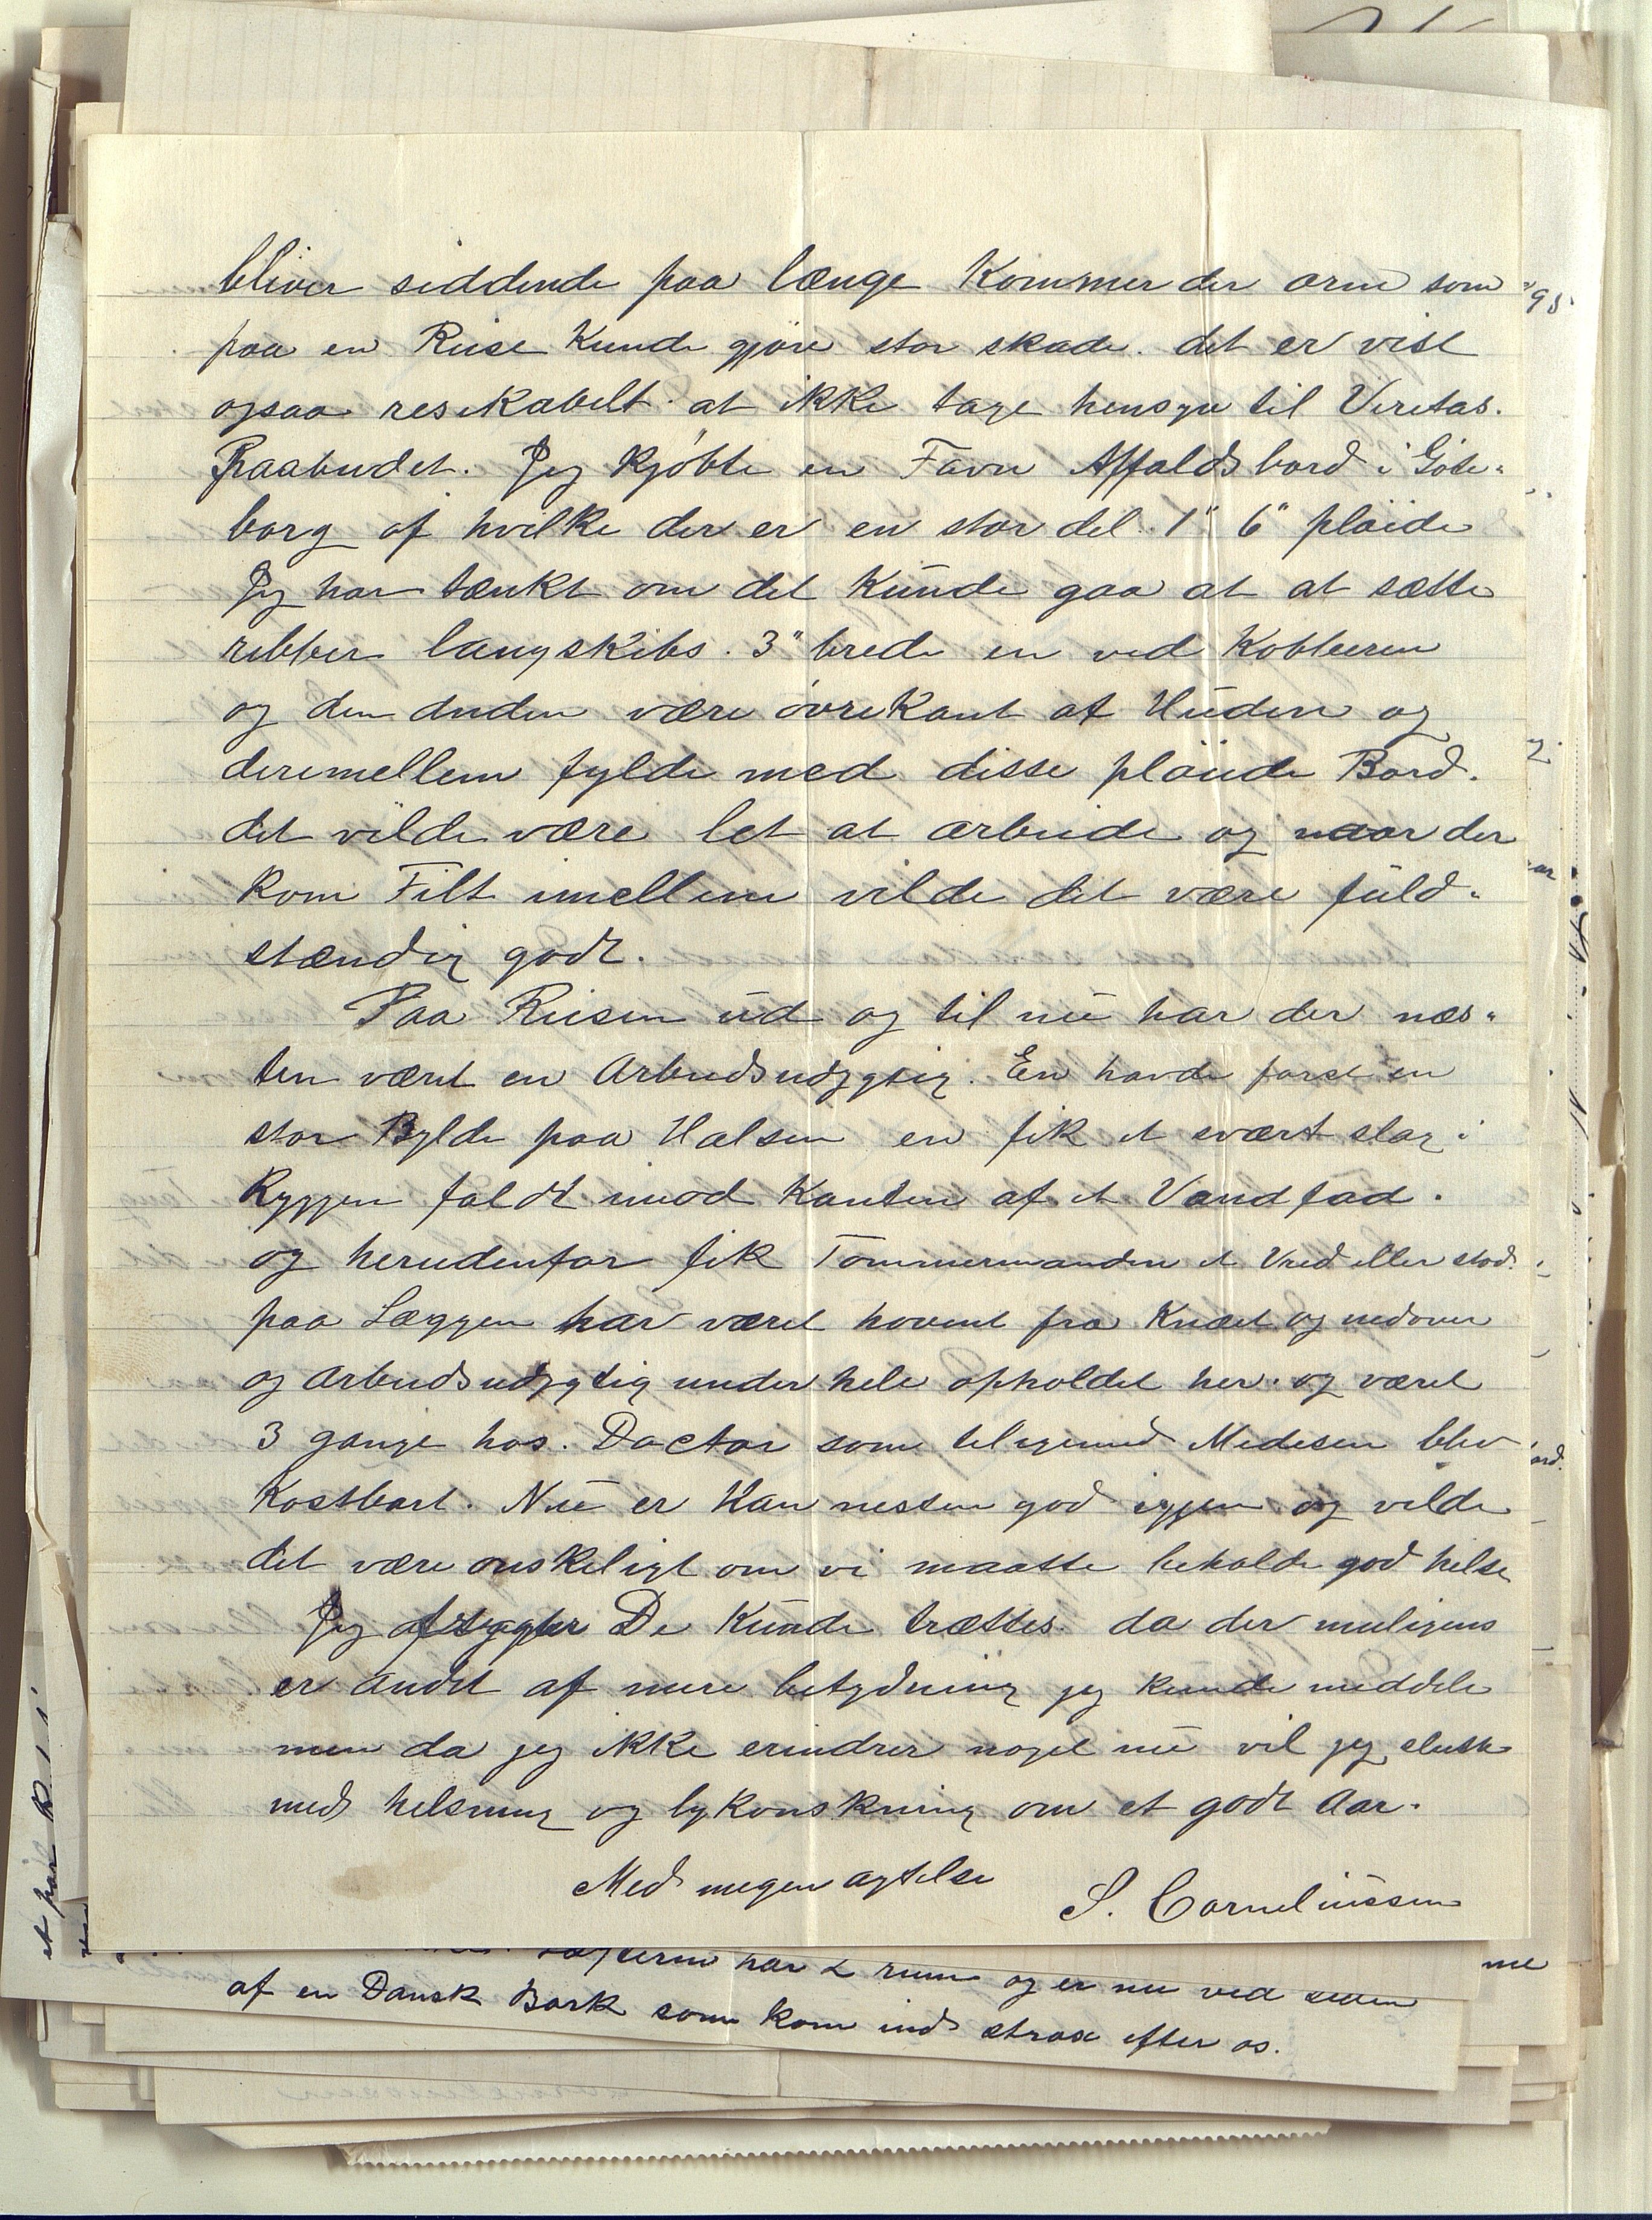 bliver siddende paa længe Kommer der orm som
paa en Reise Kunde gjøre stor skade. det er vist
ogsaa resikabelt at ikke tage hensyn til Veritas.
Paabudet. Jeg Kjøbte en Favn Affaldsbord i Göte-
borg af hvilke der er en stor del 1" 6" pløide
Jeg har tænkt om det Kunde gaa at at sætte
ribber langskibs. 3" brede en ved Kobberen
og den anden være øvreKant af Huden og
deremellem fylde med disse pløiede Bord.
det vilde være let at arbeide og naar der
Kom Filt imellem vilde det være fuld-
stændig godt.
Paa Reisen ud og til nu har der næs-
ten været en Arbeidsudygtig. En havde først en
stor Byld paa Halsen en fik et svært slag i
Ryggen faldt imod Kanten af et Vandfad.
og herudenfor fik Tømmermanden et Vred eller stød.
paa Læggen har været hovent fra Knæet og nedover
og Arbeidsudygtig under hele opholdet her. og været
3 gange hos. Doctor som teligemed Medesin blev
Kostbart. Nu er Han nesten god igjen og vilde
det være ønskeligt om vi maatte beholde god helse
Jeg De Kunde trættes. da der muligens
er andet af mere betydning jeg kunde meddele
men da jeg ikke erindrer noget nu vil jeg slutte
med helsning og lykønskning om et godt Aar.
Med megen agtelse S. Corneliussen
har 2 rum og er nu ved siden
af en Dansk Bark som kom ind strax efter os.
et par
me